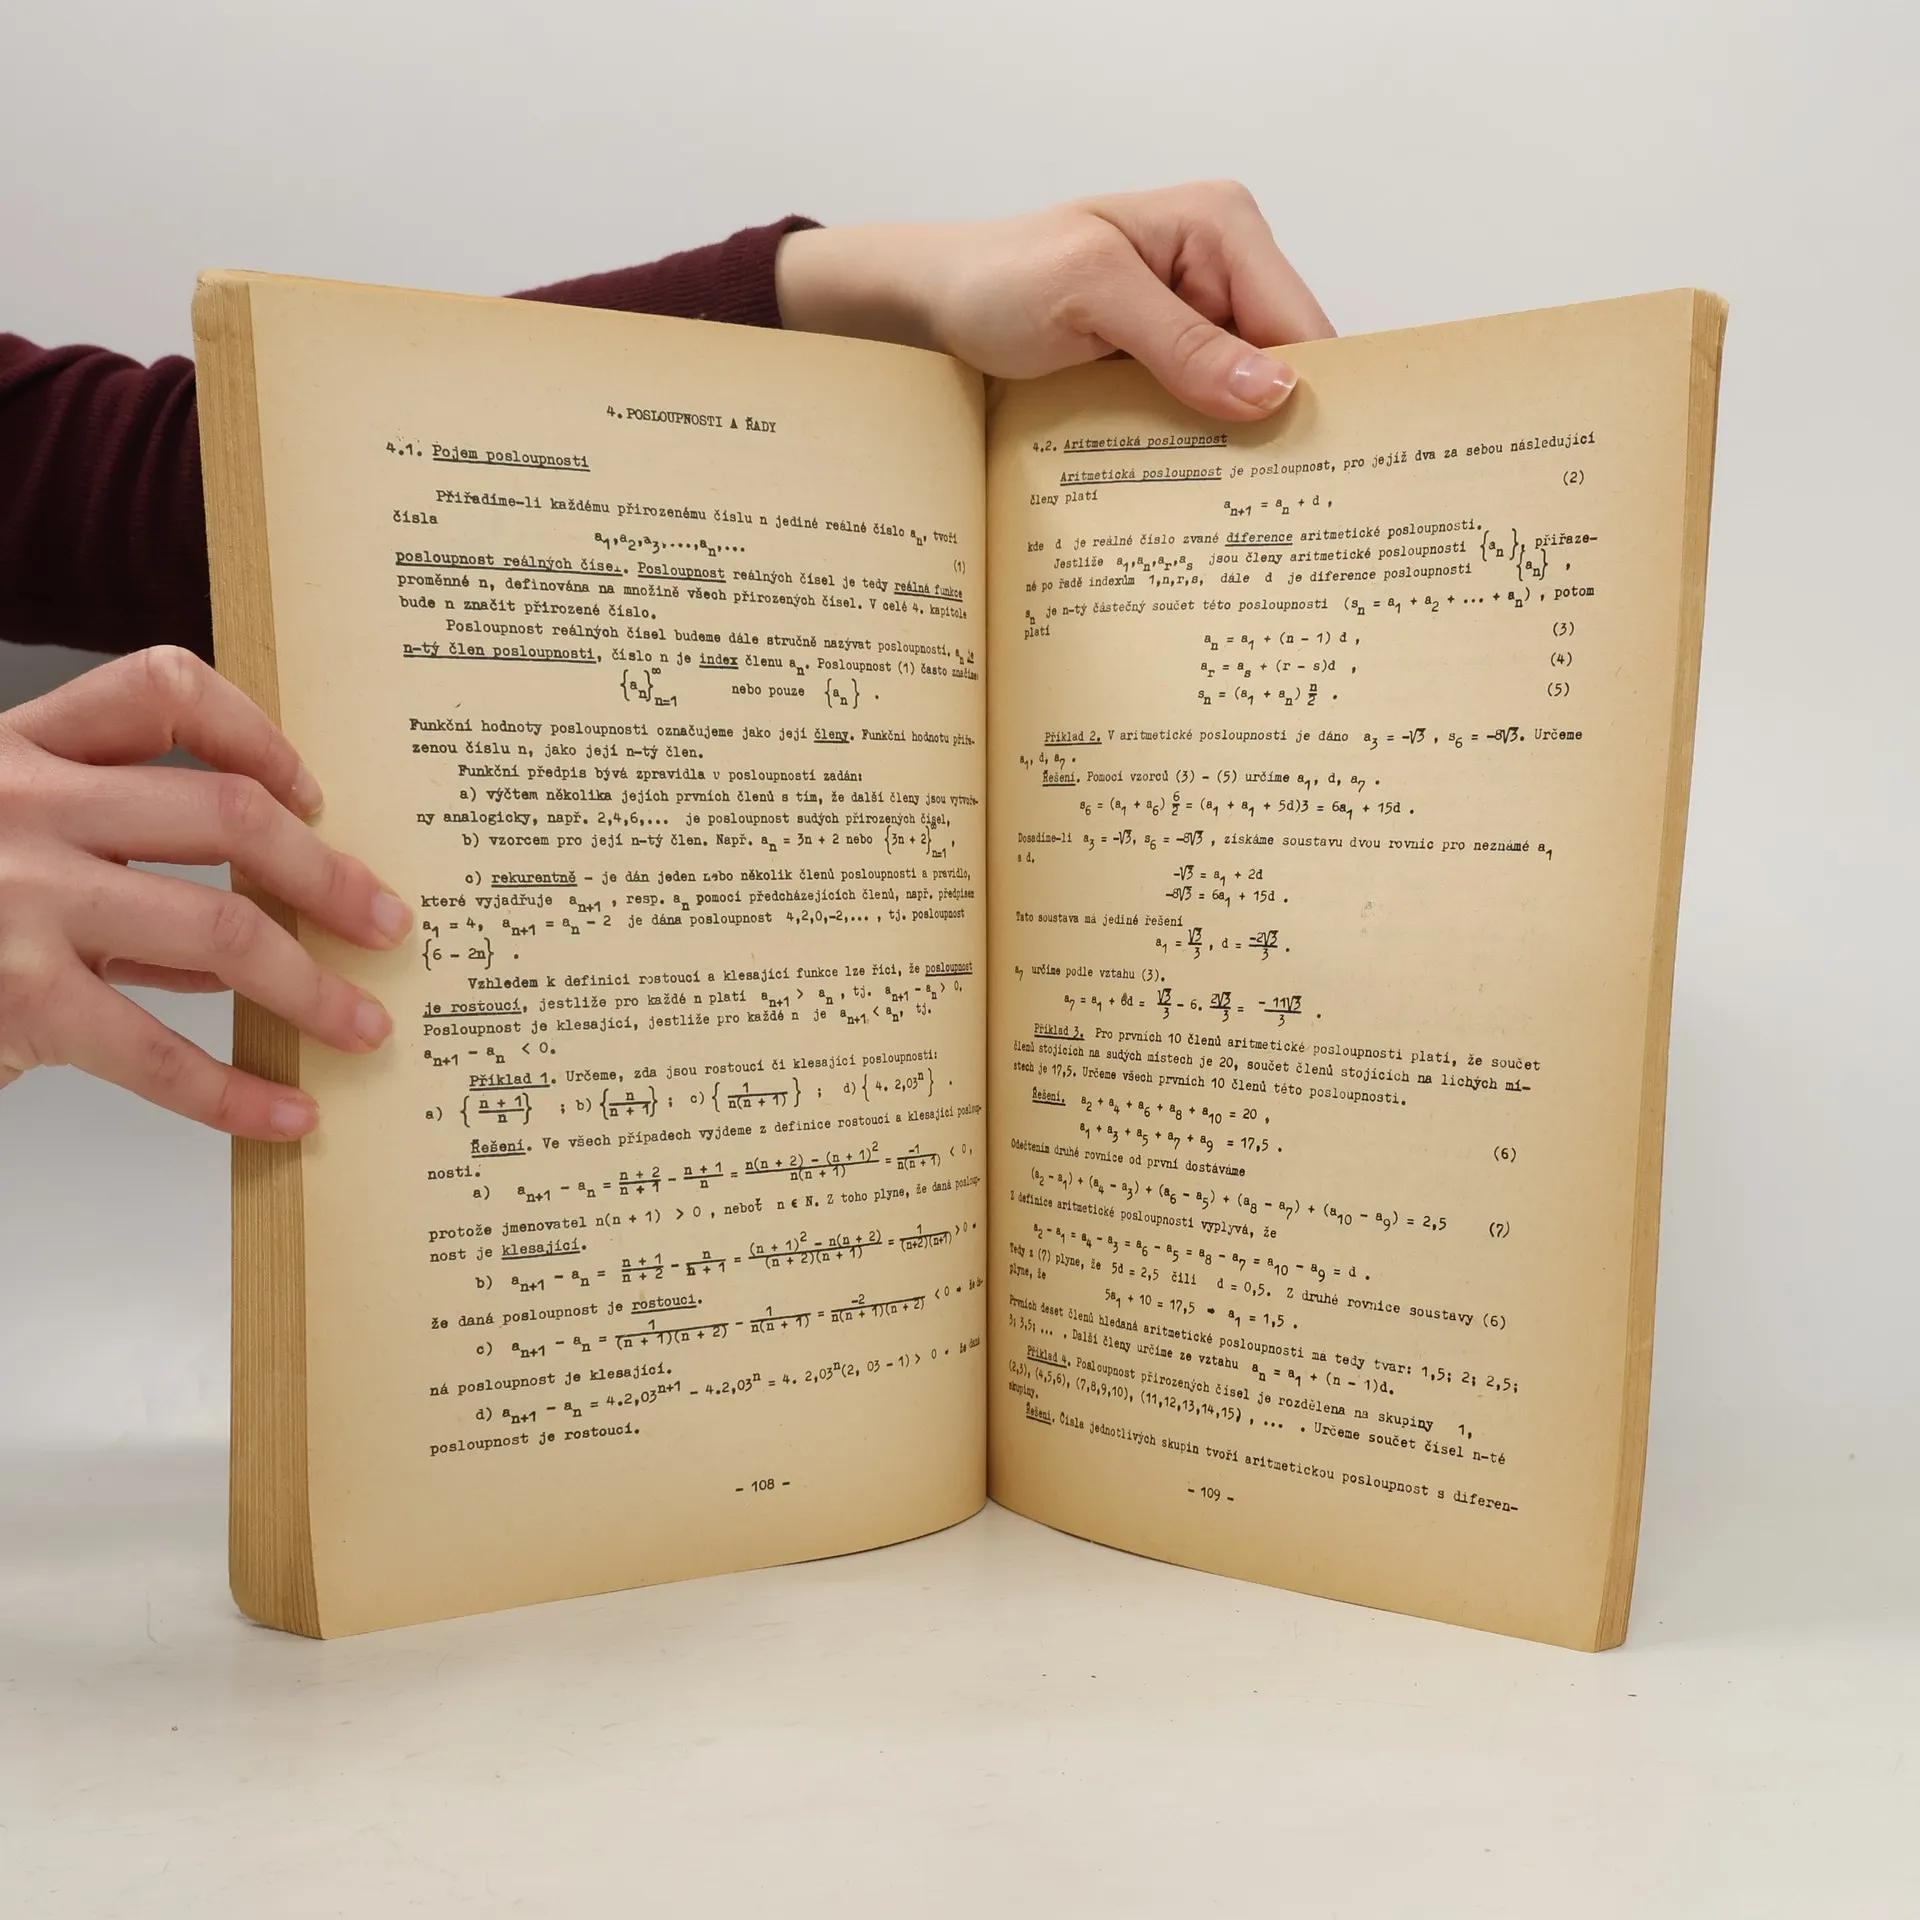 4. POSLOUPNOSTI A ŘADY
4.1. Pojem posloupnosti
Přiřadíme-li každému přirozenému číslu n jediné reálné číslo aₙ, tvoří
čísla
a₁,a₂,a₃,...,aₙ,...
(1)
posloupnost reálných čísel. Posloupnost reálných čísel je tedy reálná funkce
proměnné n, definována na množině všech přirozených čísel. V celé 4. kapitole
bude n značit přirozené číslo.
Posloupnost reálných čísel budeme dále stručně nazývat posloupností, aₙ je
n-tý člen posloupnosti, číslo n je index členu aₙ. Posloupnost (1) často značíme
{aₙ}∞ₙ₌₁ nebo pouze {aₙ} .
Funkční hodnoty posloupnosti označujeme jako její členy. Funkční hodnotu přiřa-
zenou číslu n, jako její n-tý člen.
Funkční předpis bývá zpravidla v posloupnosti zadán:
a) výčtem několika jejích prvních členů s tím, že další členy jsou vytvoře-
ny analogicky, např. 2,4,6,... je posloupnost sudých přirozených čísel,
b) vzorcem pro její n-tý člen. Např. aₙ = 3n + 2 nebo {3n + 2}∞ₙ₌₁ ,
c) rekurentně - je dán jeden nebo několik členů posloupnosti a pravidlo,
které vyjadřuje aₙ₊₁ , resp. aₙ pomocí předcházejících členů, např. předpisem
a₁ = 4, aₙ₊₁ = aₙ - 2 je dána posloupnost 4,2,0,-2,... , tj. posloupnost
{6 - 2n} .
Vzhledem k definici rostoucí a klesající funkce lze říci, že posloupnost
je rostoucí, jestliže pro každé n platí aₙ₊₁ > aₙ , tj. aₙ₊₁ - aₙ > 0.
Posloupnost je klesající, jestliže pro každé n je aₙ₊₁ < aₙ, tj.
aₙ₊₁ - aₙ < 0.
Příklad 1. Určeme, zda jsou rostoucí či klesající posloupnosti:
a) {(n + 1)/n} ; b) {n/(n + 1)} ; c) {1/(n(n + 1))} ; d) {4. 2,03ⁿ} .
Řešení. Ve všech případech vyjdeme z definice rostoucí a klesající posloup-
nosti.
a) aₙ₊₁ - aₙ = (n + 2)/(n + 1) - (n + 1)/n = (n(n + 2) - (n + 1)²)/(n(n + 1)) = -1/(n(n + 1)) < 0,
protože jmenovatel n(n + 1) > 0 , neboť n ∈ N. Z toho plyne, že daná posloup-
nost je klesající.
b) aₙ₊₁ - aₙ = (n + 1)/(n + 2) - n/(n + 1) = ((n + 1)² - n(n + 2))/((n + 2)(n + 1)) = 1/((n+2)(n+1)) > 0
že daná posloupnost je rostoucí.
c) aₙ₊₁ - aₙ = 1/((n + 1)(n + 2)) - 1/(n(n + 1)) = -2/(n(n + 1)(n + 2)) < 0 že da-
ná posloupnost je klesající.
d) aₙ₊₁ - aₙ = 4.2,03ⁿ⁺¹ - 4.2,03ⁿ = 4. 2,03ⁿ(2, 03 - 1) > 0 že daná
posloupnost je rostoucí.
- 108 -
4.2. Aritmetická posloupnost
Aritmetická posloupnost je posloupnost, pro jejíž dva za sebou následující
členy platí
aₙ₊₁ = aₙ + d , (2)
kde d je reálné číslo zvané diference aritmetické posloupnosti.
Jestliže a₁,aₙ,aᵣ,aₛ jsou členy aritmetické posloupnosti {aₙ}, přiřaze-
né po řadě indexům 1,n,r,s, dále d je diference posloupnosti {aₙ} ,
sₙ je n-tý částečný součet této posloupnosti (sₙ = a₁ + a₂ + ... + aₙ) , potom
platí
aₙ = a₁ + (n - 1) d , (3)
aᵣ = aₛ + (r - s)d , (4)
sₙ = (a₁ + aₙ) n/2 . (5)
Příklad 2. V aritmetické posloupnosti je dáno a₃ = -√3 , s₆ = -8√3. Určeme
a₁, d, a₇ .
Řešení. Pomocí vzorců (3) - (5) určíme a₁, d, a₇ .
s₆ = (a₁ + a₆) 6/2 = (a₁ + a₁ + 5d)3 = 6a₁ + 15d .
Dosadíme-li a₃ = -√3, s₆ = -8√3 , získáme soustavu dvou rovnic pro neznámé a₁
a d,
-√3 = a₁ + 2d
-8√3 = 6a₁ + 15d .
Tato soustava má jediné řešení
a₁ = √3/3 , d = -2√3/3 .
a₇ určíme podle vztahu (3).
a₇ = a₁ + 6d = √3/3 - 6. 2√3/3 = -11√3/3 .
Příklad 3. Pro prvních 10 členů aritmetické posloupnosti platí, že součet
členů stojících na sudých místech je 20, součet členů stojících na lichých mí-
stech je 17,5. Určeme všech prvních 10 členů této posloupnosti.
Řešení. a₂ + a₄ + a₆ + a₈ + a₁₀ = 20 ,
a₁ + a₃ + a₅ + a₇ + a₉ = 17,5 . (6)
Odečtením druhé rovnice od první dostáváme
(a₂ - a₁) + (a₄ - a₃) + (a₆ - a₅) + (a₈ - a₇) + (a₁₀ - a₉) = 2,5 (7)
Z definice aritmetické posloupnosti vyplývá, že
a₂ - a₁ = a₄ - a₃ = a₆ - a₅ = a₈ - a₇ = a₁₀ - a₉ = d .
Tedy z (7) plyne, že 5d = 2,5 čili d = 0,5. Z druhé rovnice soustavy (6)
plyne, že
5a₁ + 10 = 17,5 ⇒ a₁ = 1,5 .
Prvních deset členů hledaná aritmetické posloupnosti má tedy tvar: 1,5; 2; 2,5;
3; 3,5; ... . Další členy určíme ze vztahu aₙ = a₁ + (n - 1)d.
Příklad 4. Posloupnost přirozených čísel je rozdělena na skupiny 1,
(2,3), (4,5,6), (7,8,9,10), (11,12,13,14,15) , ... . Určeme součet čísel n-té
skupiny.
Řešení. Čísla jednotlivých skupin tvoří aritmetickou posloupnost s diferen-
- 109 -